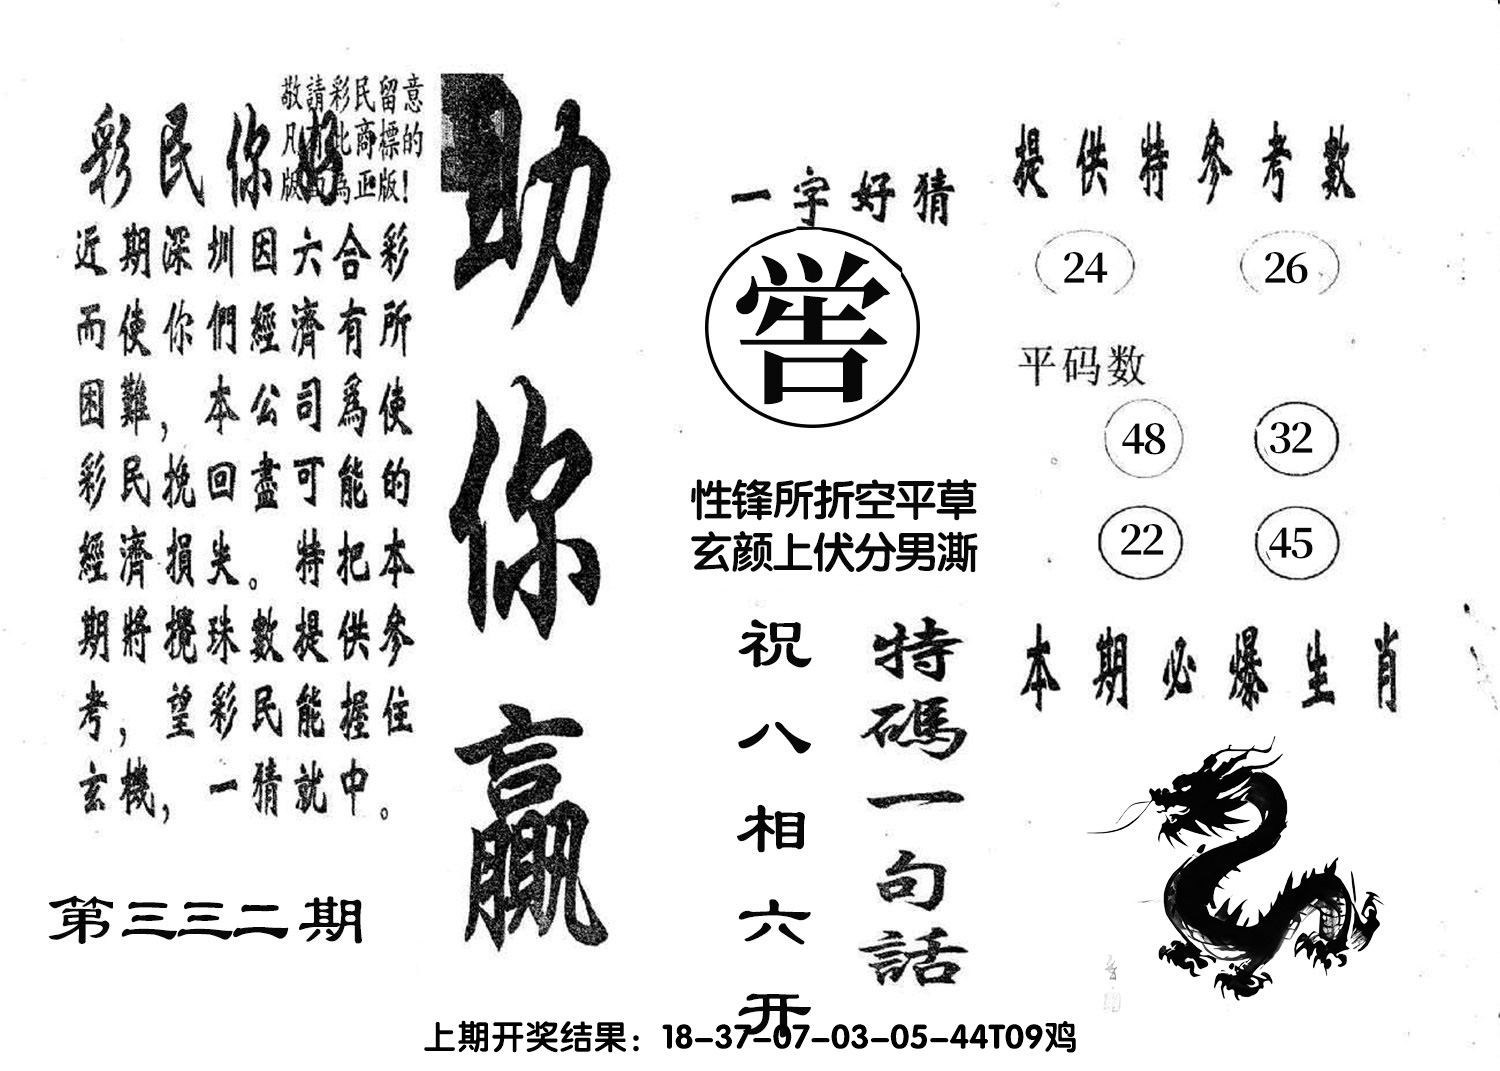 敬請彩民留意
凡有此商標的
版面為正版!
彩民你好
近期深圳因六合彩
而使你們經濟有所
困難,本公司爲使
彩民挽回盡可能的
經濟損失。特把本
期將攪珠數提供參
考,望彩民能握住
玄機,一猜就中。
第三三二期
助你贏
一字好猜
喾
性锋所折空平草
玄颜上伏分男澌
特碼一句話
祝八相六开
提供特參考數
24 26
平码数
48 32
22 45
本期必爆生肖
上期开奖结果：18-37-07-03-05-44T09鸡